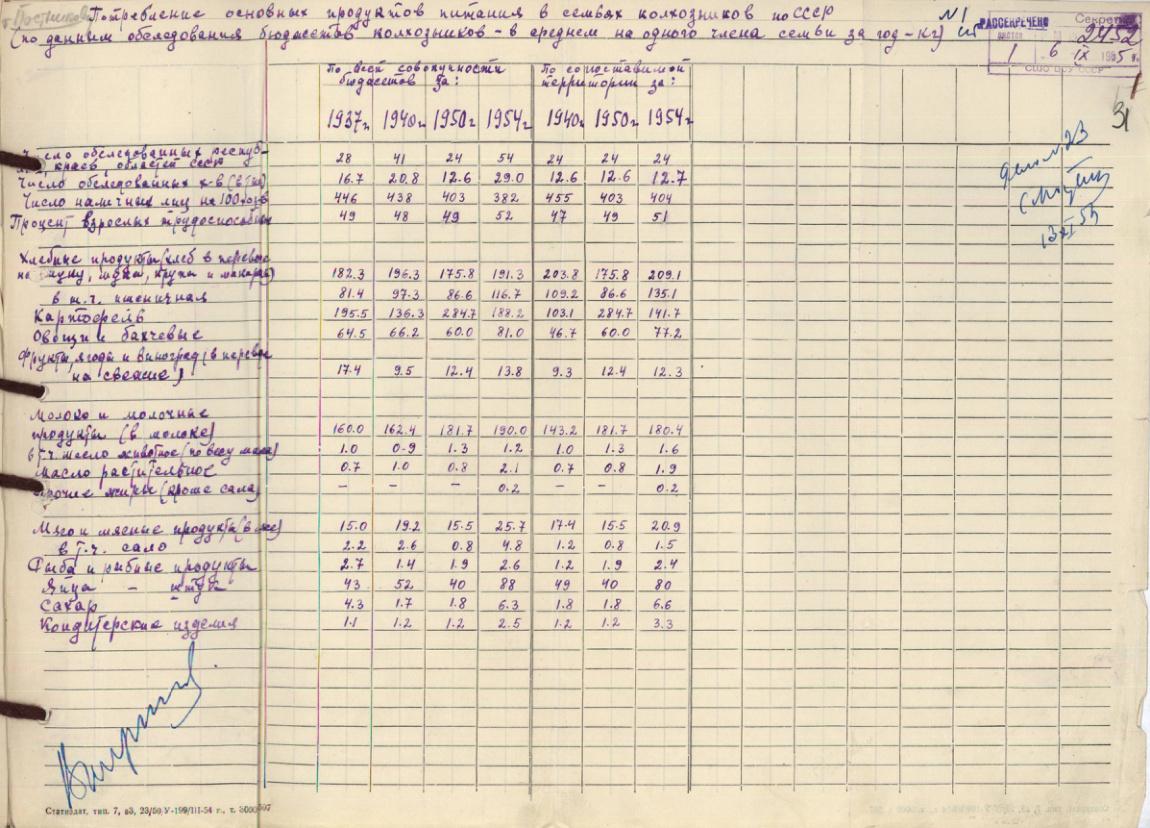 Потребление основных продуктов питания в семьях колхозников по СССР №1
(по данным обследования бюджетов колхозников - в среднем на одного члена семьи за год - кг)
РАССЕКРЕЧЕНО Секретно
2452
1 6 IX 1955 г.
ЦСУ СССР
31
По всей совокупности бюджетов за: По сопоставимой территории за:
1937г. 1940г. 1950г. 1954г. 1940г. 1950г. 1954г.
Число обследованных респуб-
краев, областей СССР 28 41 24 54 24 24 24
Число обследованных х-в (в тыс) 16.7 20.8 12.6 29.0 12.6 12.6 12.7
Число наличных лиц на 100 хоз-в 446 438 403 382 455 403 404
Процент взрослых трудоспособных 49 48 49 52 47 49 51
Хлебные продукты (хлеб в переводе
на муку, мука, крупа и макароны) 182.3 196.3 175.8 191.3 203.8 175.8 209.1
в т.ч. пшеничная 81.4 97.3 86.6 116.7 109.2 86.6 135.1
Картофель 195.5 136.3 284.7 188.2 103.1 284.7 141.7
Овощи и бахчевые 64.5 66.2 60.0 81.0 46.7 60.0 77.2
Фрукты, ягоды и виноград (в переводе
на свежие) 17.4 9.5 12.4 13.8 9.3 12.4 12.3
Молоко и молочные
продукты (в молоке) 160.0 162.4 181.7 190.0 143.2 181.7 180.4
в т.ч. масло животное (по весу масла) 1.0 0.9 1.3 1.2 1.0 1.3 1.6
Масло растительное 0.7 1.0 0.8 2.1 0.7 0.8 1.9
Прочие жиры (кроме сала) - - - 0.2 0.2
Мясо и мясные продукты (в мясе) 15.0 19.2 15.5 25.7 17.4 15.5 20.9
в т.ч. сало 2.2 2.6 0.8 4.8 1.2 0.8 1.5
Рыба и рыбные продукты 2.7 1.4 1.9 2.6 1.2 1.9 2.4
Яйца - штук 43 52 40 88 49 40 80
Сахар 4.3 1.7 1.8 6.3 1.8 1.8 6.6
Кондитерские изделия 1.1 1.2 1.2 2.5 1.2 1.2 3.3
Статиздат, тип. 7, в3, 23/50 У-199/III-54 г., т. 5000